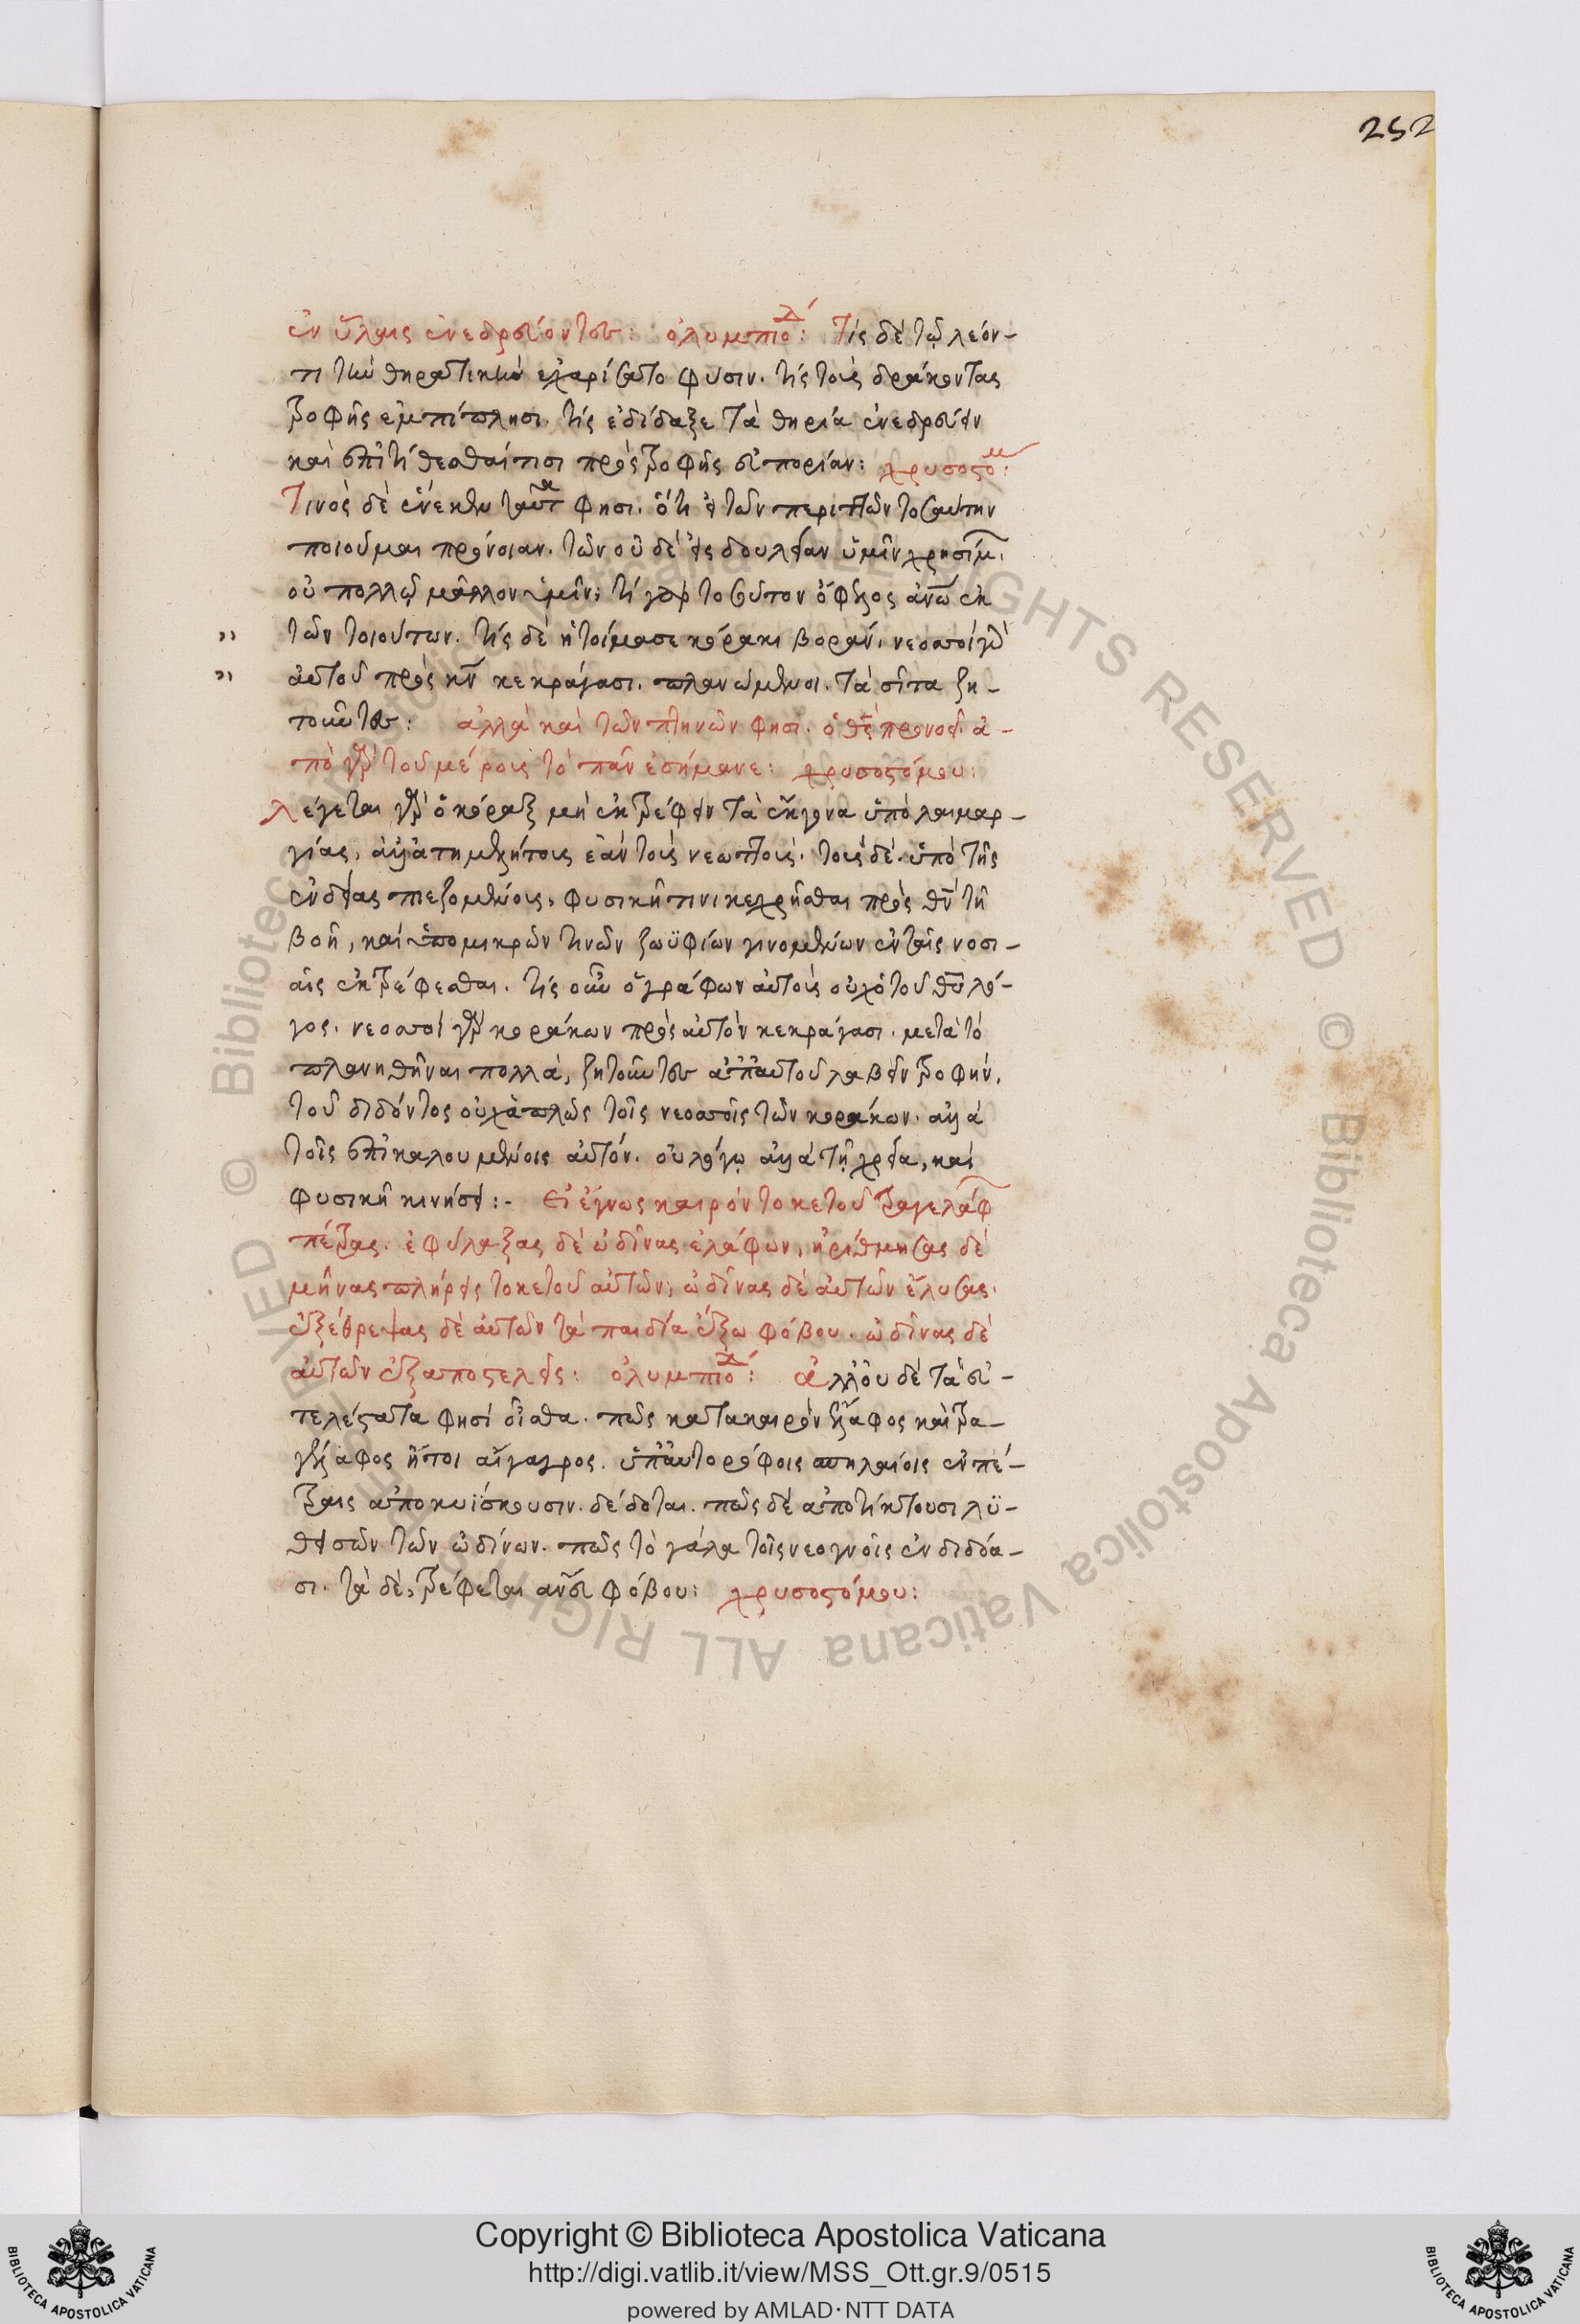 252
ἐν ὕλαις ἐνεδρεύοντες: ὀλυμπιοδ: Τίς δὲ τῷ λέον-
τι τὴν θηρατικὴν ἐχαρίσατο φύσιν. τίς τοὺς δράκοντας
τροφῆς ἐμπίπλησι. τίς ἐδίδαξε τὰ θηρία ἐνεδρεύειν
καὶ ἐπιτίθεσθαί τισι πρὸς τροφῆς εὐπορίαν: χρυσοστομ:
Τινὸς δὲ ἕνεκεν ταῦτα φησι. ὅτι εἰ τῶν περιττῶν τοσαύτην
ποιοῦμαι πρόνοιαν. τῶν οὐδὲ εἰς δουλείαν ὑμῖν χρησίμ.
οὐ πολλῷ μᾶλλον ὑμῖν; τί γὰρ τοσοῦτον ὄφελος ἀνω ἐκ
τῶν τοιούτων. τίς δὲ ἡτοίμασε κόρακι βοράν. νεοσσοὶ γὰρ
αὐτοῦ πρὸς κν κεκράγασι. πλανώμενοι. τὰ σῖτα ζη-
τοῦντες: ἀλλὰ καὶ τῶν πτηνῶν φησι. ὁ θς προνοεῖ. ἀ-
πὸ γὰρ τοῦ μέρους τὸ πᾶν ἐσήμανε: χρυσοστόμου:
Λέγεται γὰρ ὁ κόραξ μὴ ἐκτρέφειν τὰ ἔκγονα ὑπὸ λαιμαρ-
γίας, ἀλλ' ἀτημελήτους ἐᾶν τοὺς νεωττούς. τοὺς δὲ. ὑπὸ τῆς
ἐνδείας πιεζομένους, φυσικῇ τινι κεχρῆσθαι πρὸς θν τῇ
βοῇ, καὶ ὑπὸ μικρῶν τινῶν ζωϋφίων γινομένων ἐν ταῖς νοσι-
αῖς ἐκτρέφεσθαι. τίς οὖν ὁ τράφων αὐτοὺς οὐχ ὁ τοῦ θυ λό-
γος. νεοσσοὶ γὰρ κοράκων πρὸς αὐτὸν κεκράγασι. μετὰ τὸ
πλανηθῆναι πολλά, ζητοῦντες ἀπ' αὐτοῦ λαβεῖν τροφήν.
τοῦ διδόντος οὐχ ἁπλῶς τοῖς νεοσσοῖς τῶν κοράκων. ἀλλὰ
τοῖς ἐπικαλουμένοις αὐτόν. οὐ λόγῳ ἀλλὰ τῇ χρείᾳ, καὶ
φυσικῇ κινήσει:- Εἰ ἔγνως καιρὸν τοκετοῦ τραγελάφ
πέτρας. ἐφύλαξας δὲ ὠδῖνας ἐλάφων, ἠρίθμησας δὲ
μῆνας πλήρεις τοκετοῦ αὐτῶν; ὠδῖνας δὲ αὐτῶν ἔλυσας.
ἐξέθρεψας δὲ αὐτῶν τὰ παιδία ἔξω φόβου. ὠδῖνας δὲ
αὐτῶν ἐξαποστελεῖς: ὀλυμπιοδ: ἀλλ' οὐδὲ τὰ εὐ-
τελέστατα φησὶ οἶσθα. πῶς κατὰ καιρὸν ἔλαφος καὶ τρα-
γέλαφος ἤτοι αἴγαγρος. ὑπ' αὐτορόφοις σπηλαίοις ἐν πέ-
τραις ἀποκυΐσκουσιν. δέδοται. πῶς δὲ ἀποτίκτουσι λϋ-
θεισῶν τῶν ὠδίνων. πῶς τὸ γάλα τοῖς νεογνοῖς ἐνδιδόα-
σι. τὰ δὲ, τρέφεται ἄνευ φόβου: χρυσοστόμου:
Copyright © Biblioteca Apostolica Vaticana
http://digi.vatlib.it/view/MSS_Ott.gr.9/0515
powered by AMLAD·NTT DATA